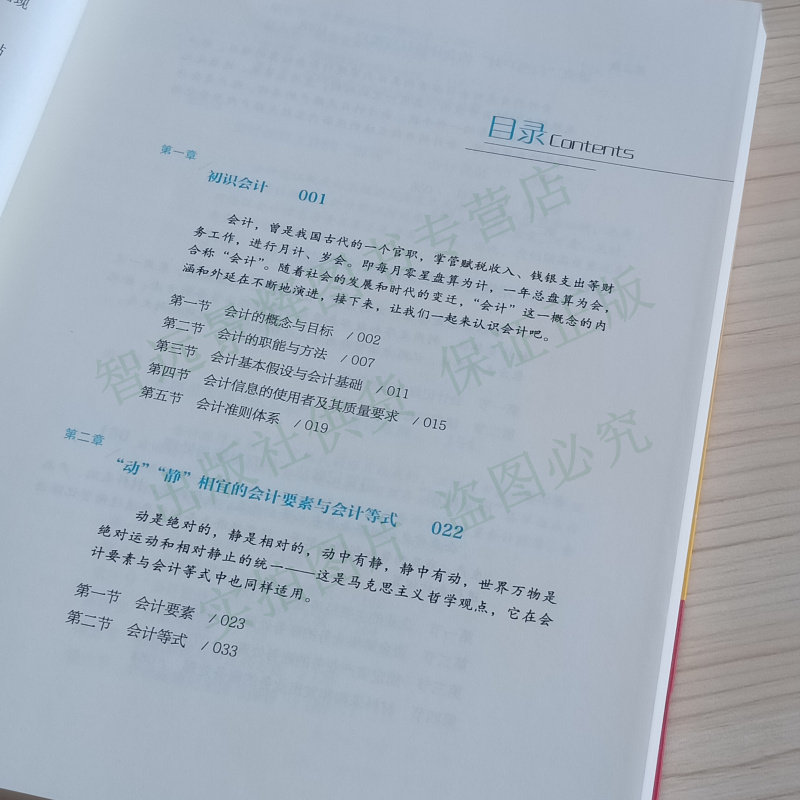 现
站
目录 Contents
第一章
初识会计 001
会计，曾是我国古代的一个官职，掌管赋税收入、钱银支出等财
务工作，进行月计、岁会。即每月零星盘算为计，一年总盘算为会，
合称“会计”。随着社会的发展和时代的变迁，“会计”这一概念的内
涵和外延在不断地演进，接下来，让我们一起来认识会计吧。
第一节 会计的概念与目标 / 002
第二节 会计的职能与方法 / 007
第三节 会计基本假设与会计基础 / 011
第四节 会计信息的使用者及其质量要求 / 015
第五节 会计准则体系 / 019
第二章
“动”“静”相宜的会计要素与会计等式 022
动是绝对的，静是相对的，动中有静，静中有动，世界万物是
绝对运动和相对静止的统一——这是马克思主义哲学观点，它在会
计要素与会计等式中也同样适用。
第一节 会计要素 / 023
第二节 会计等式 / 033
专营店
出版社供货 保证正版
实拍图片 盗图必究